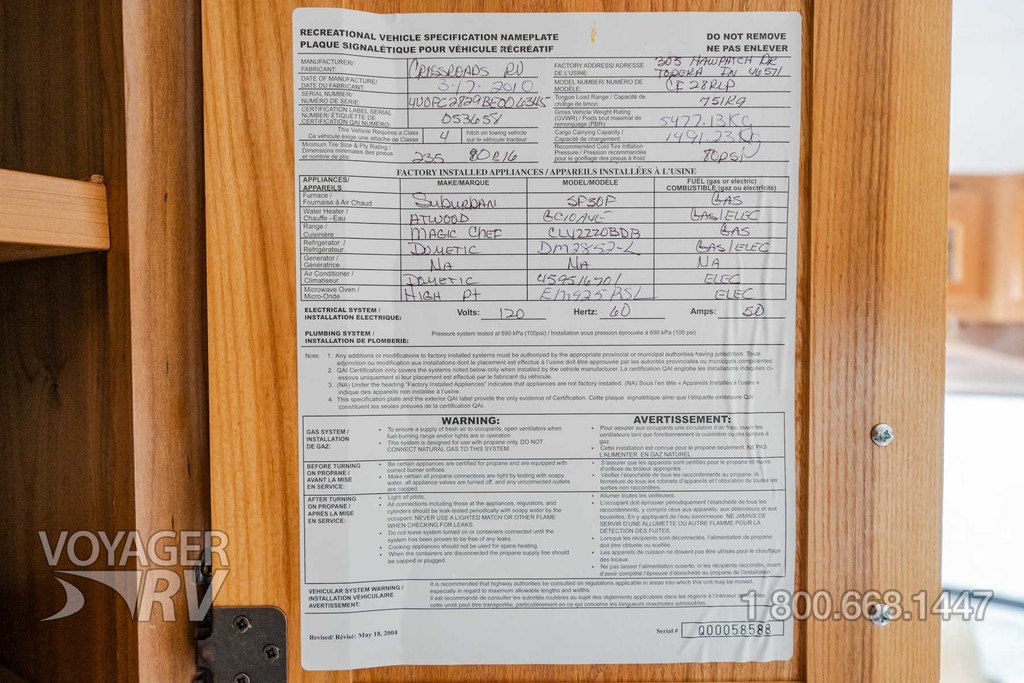 RECREATIONAL VEHICLE SPECIFICATION NAMEPLATE
PLAQUE SIGNALÉTIQUE POUR VÉHICULE RÉCRÉATIF
DO NOT REMOVE
NE PAS ENLEVER
MANUFACTURER/
FABRICANT:
CROSSROADS RV
FACTORY ADDRESS/ADRESSE
DE L'USINE:
305 HAWPATCH DR
TOPEKA IN 46571
DATE OF MANUFACTURE/
DATE DU FABRICANT:
3-17-2010
MODEL NUMBER/ NUMÉRO DE
MODÈLE:
CF 28RLP
SERIAL NUMBER/
NUMÉRO DE SÉRIE:
Tongue Load Range / Capacité de
charge de timon:
751Kg
CERTIFICATION LABEL SERIAL
NUMBER/ ÉTIQUETTE DE
CERTIFICATION QAI NUMÉRO:
053658
Gross Vehicle Weight Rating
(GVWR) / Poids brut maximal de
remorquage (PBR):
5477.13Kg
This Vehicle Requires a Class
Ce véhicule exige une attache de Classe
4
hitch on towing vehicle
sur le véhicule tracteur
Cargo Carrying Capacity /
Capacité de chargement:
1491.23Kg
Minimum Tire Size & Ply Rating /
Dimensions minimales des pneus
et nombre de plis:
235 80R16
Recommended Cold Tire Inflation
Pressure / Pression recommandée
pour le gonflage des pneus à froid:
80PSI
FACTORY INSTALLED APPLIANCES / APPAREILS INSTALLÉES À L'USINE
APPLIANCES/
APPAREILS
MAKE/MARQUE
MODEL/MODÈLE
FUEL (gas or electric)
COMBUSTIBLE (gaz ou électricité)
Furnace /
Fournaise à Air Chaud
SUBURBAN
GAS
Water Heater /
Chauffe –Eau
ATWOOD
GAS/ELEC
Range /
Cuisinière
MAGIC CHEF
CLY2220BDB
GAS
Refrigerator /
Réfrigérateur
DOMETIC
DM2852-L
GAS/ELEC
Generator /
Génératrice
NA
NA
NA
Air Conditioner /
Climatiseur
DOMETIC
ELEC
Microwave Oven /
Micro-Onde
HIGH Pt
ELEC
ELECTRICAL SYSTEM /
INSTALLATION ÉLECTRIQUE:
Volts: 120 Hertz: 60 Amps: 50
PLUMBING SYSTEM /
INSTALLATION DE PLOMBERIE:
Pressure system tested at 690 kPa (100psi) / Installation sous pression éprouvée à 690 kPa (100 psi)
Note: 1. Any additions or modifications to factory Installed systems must be authorized by the appropriate provincial or municipal authorities having jurisdiction. Toute
adjonction ou modification aux installations dont le placement est effectué à l'usine doit être approuvée par les autorités provinciales ou municipals compétentes.
2. QAI Certification only covers the systems noted below only when installed by the vehicle manufacturer. La certification QAI englobe les installations indiquées ci-
essous uniquement si leur placement est effectué par le fabricant du véhicule.
3. (NA) Under the heading "Factory Installed Appliances" indicates that appliances are not factory installed. (NA) Sous l'en tête « Appareils Installés à l'usine »
indique des appareils non installés à l'usine.
4. This specification plate and the exterior QAI label provide the only evidence of Certification. Cette plaque signalétique ainsi que l'étiquette extérieure QAI
constituent les seules preuves de la certification QAI.
WARNING:
AVERTISSEMENT:
GAS SYSTEM /
INSTALLATION
DE GAZ:
• To ensure a supply of fresh air to occupants, open ventilators when
fuel-burning range and/or lights are in operation
• This system is designed for use with propane only. DO NOT
CONNECT NATURAL GAS TO THIS SYSTEM
• Pour assurer aux occupants une circulation d'air frais, ouvrir les
ventilateurs tant que fonctionnent la cuisinière ou des lampes à
gaz.
• Cette installation est conçue pour le propane seulement. NE PAS
L'ALIMENTER EN GAZ NATUREL
BEFORE TURNING
ON PROPANE /
AVANT LA MISE
EN SERVICE:
• Be certain appliances are certified for propane and are equipped with
correct burner orifices.
• Make certain all propane connections are tight by testing with soapy
water, all appliance valves are turned off, and any unconnected outlets
are capped.
• S'assurer que les appareils sont certifiés pour le propane et munis
d'orifices de brûleur appropriés.
• Vérifier l'étanchéité de tous les raccordements au propane, la
fermeture de tous les robinets d'appareils et l'obturation de toutes les
sorties non raccordées.
AFTER TURNING
ON PROPANE /
APRÈS LA MISE
EN SERVICE:
• Light all pilots.
• All connections including those at the appliances, regulators, and
cylinders should be leak-tested periodically with soapy water by the
occupant. NEVER USE A LIGHTED MATCH OR OTHER FLAME
WHEN CHECKING FOR LEAKS.
• Do not leave system turned on or containers connected until the
system has been proven to be free of any leaks.
• Cooking appliances should not be used for space heating.
• When the containers are disconnected the propane supply line should
be capped or plugged.
• Allumer toutes les veilleuses.
• L'occupant doit éprouver périodiquement l'étanchéité de tous les
raccordements, y compris ceux aux appareils, aux détendeurs et aux
bouteilles. En y appliquant de l'eau savonneuse. NE JAMAIS DE
SERVIR D'UNE ALLUMETTE OU AUTRE FLAMME POUR LA
DÉTECTION DES FUITES.
• Lorsque les recipients sont déconnectés, l'alimentation de propane
doit être obturée ou scellée.
• Les appareils de cuisson ne doivent pas être utilisés pour le chauffage
des locaux.
• Ne pas laisser l'alimentation ouverte, ni les récipients raccordés, avant
d'avoir complété l'épreuve d'étanchéité au propane de l'installation.
VEHICULAR SYSTEM WARNING /
INSTALLATION VÉHICULAIRE
AVERTISSEMENT:
It is recommended that highway authorities be consulted on regulations applicable in areas into which this unit may be moved,
especially in regard to maximum allowable lengths and widths.
Il est recommandé de consulter les autorités routières au sujet des règlements applicables dans les régions à l'intérieur desquelles
cette unité peut être transportée, particulièrement en ce qui concerne les longueurs maximales admissibles.
Revised/ Révisé: May 18, 2004
Serial # Q00058588
VOYAGER
RV
1.800.668.1447